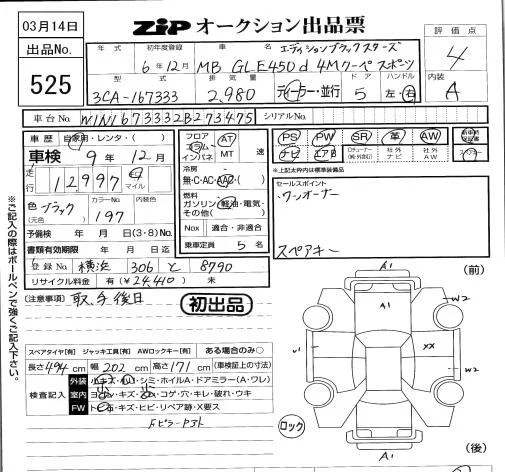 03月14日
ZIP オークション出品票
評価点
4
出品No.
525
年式 初年度登録 車名 エディションブラックスターズ
6年12月 MB GLE450d 4Mクーペスポーツ
内装
A
型式 排気量 ドア ハンドル
3CA-167333 2,980 ディーラー・並行 5 左・右
車台No. W1N1673332B273475 シリアルNo.
車歴 自家用・レンタ・( )
車検 9年12月
走行 12,997 km マイル
色 ブラック カラーNo. 197 内装色
(元色)
予備検 年 月 日(3・8)No.
書類有効期限 年 月 日迄
登録No. 横浜 306 と 8790
リサイクル料金 有(¥24,410) 未
フロア コラム インパネ AT MT 速
冷房
無・C・AC・AAC・( )
燃料
ガソリン・軽油・電気・
その他( )
Nox 適合・非適合
乗車定員 5 名
PS PW SR 革 AW
ナビ エアB 社外ナビ 社外AW
*上記太枠内は標準装備品
セールスポイント
ワンオーナー
スペアキー
(注意事項) 取、手後日
初出品
※ご記入の際はボールペンで強くご記入下さい。
スペアタイヤ[有] ジャッキ工具[有] AWロックキー[有] ある場合のみ○
長さ494cm 幅202cm 高さ171cm (車検証上の寸法)
検査記入
外装 小キズ・凹・シミ・ホイルA・ドアミラー(A・ワレ)
室内 ヨゴレ・キズ・スレ・コゲ・穴・キレ・破れ・ウキ
FW トビ石・キズ・ヒビ・リペア跡・X要ス
(前)
A1
A1
W2
U1
XX
W2
ロック
A1
(後)